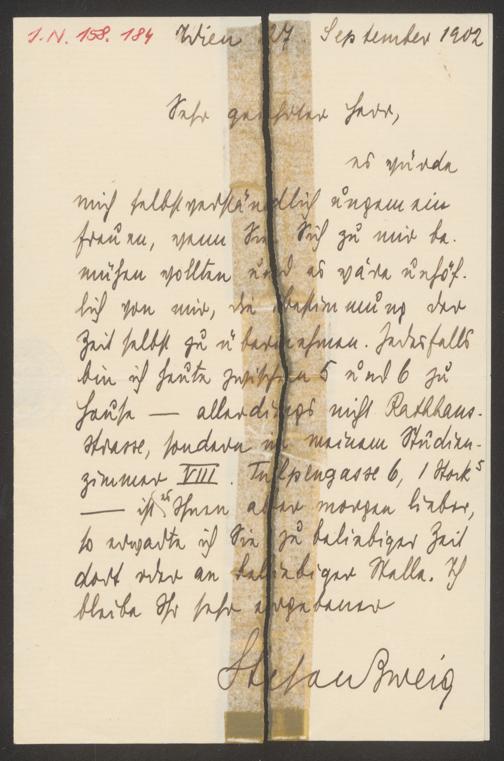 J. N. 158.184
Wien 27. September 1902
Sehr geehrter Herr,
es würde
mich selbstverständlich ungemein
freuen, wenn Sie Sich zu mir be-
mühen wollten und es wäre unhöf-
lich von mir, die Bestimmung der
Zeit selbst zu übernehmen. Jedesfalls
bin ich heute zwischen 5 und 6 zu
Hause — allerdings nicht Rathhaus-
strasse, sondern in meinem Studien-
zimmer VIII. Tulpengasse 6, 1 Stock 5
— ist es Ihnen aber morgen lieber,
so erwarte ich Sie zu beliebiger Zeit
dort oder an beliebiger Stelle. Ich
bleibe Ihr sehr ergebener
Stefan Zweig